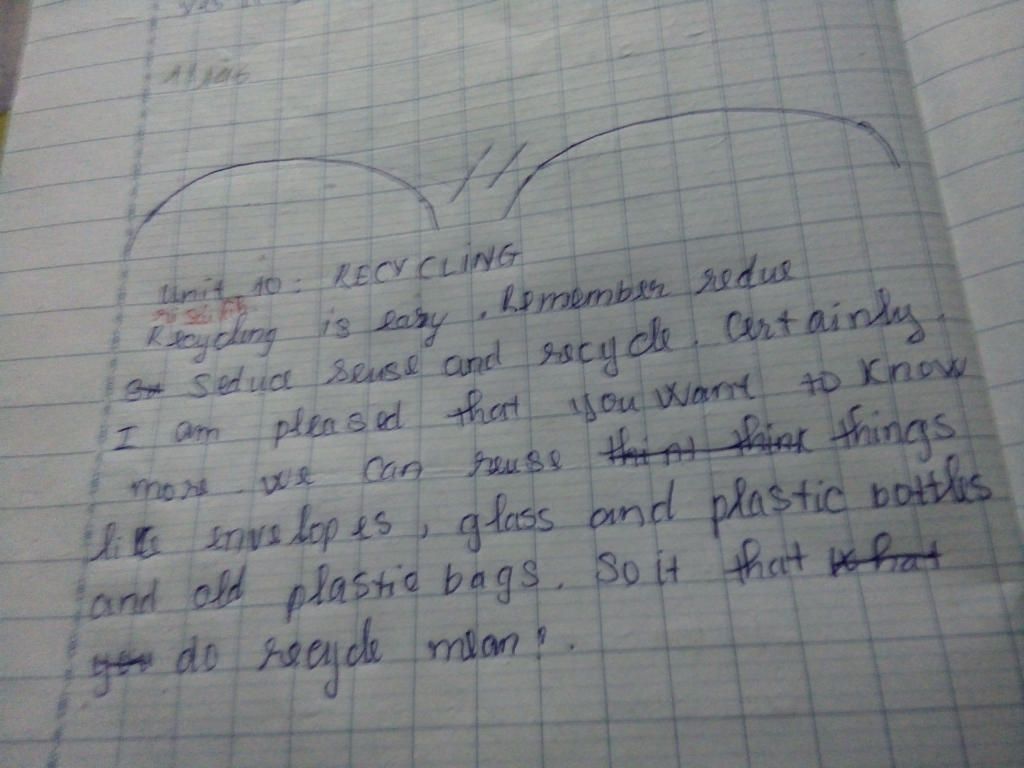 Unit 10: RECYCLING
Recycling is easy. Remember redue
Seduce reuse and recycle. Certainly.
I am pleased that you want to know
more. we can reuse things
like envelopes, glass and plastic bottles
and old plastic bags. So it that
do recycle mean?.